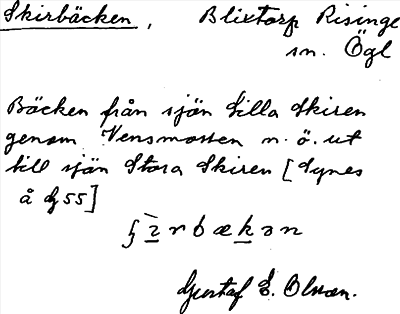 Skirbäcken, Blixtorp Risinge
sn. Ögl
Bäcken från sjön Lilla Skiren
genom Vensmossen n. ö. ut
till sjön Stora Skiren [Synes
å gj 55]
Gustaf E. Olsson.